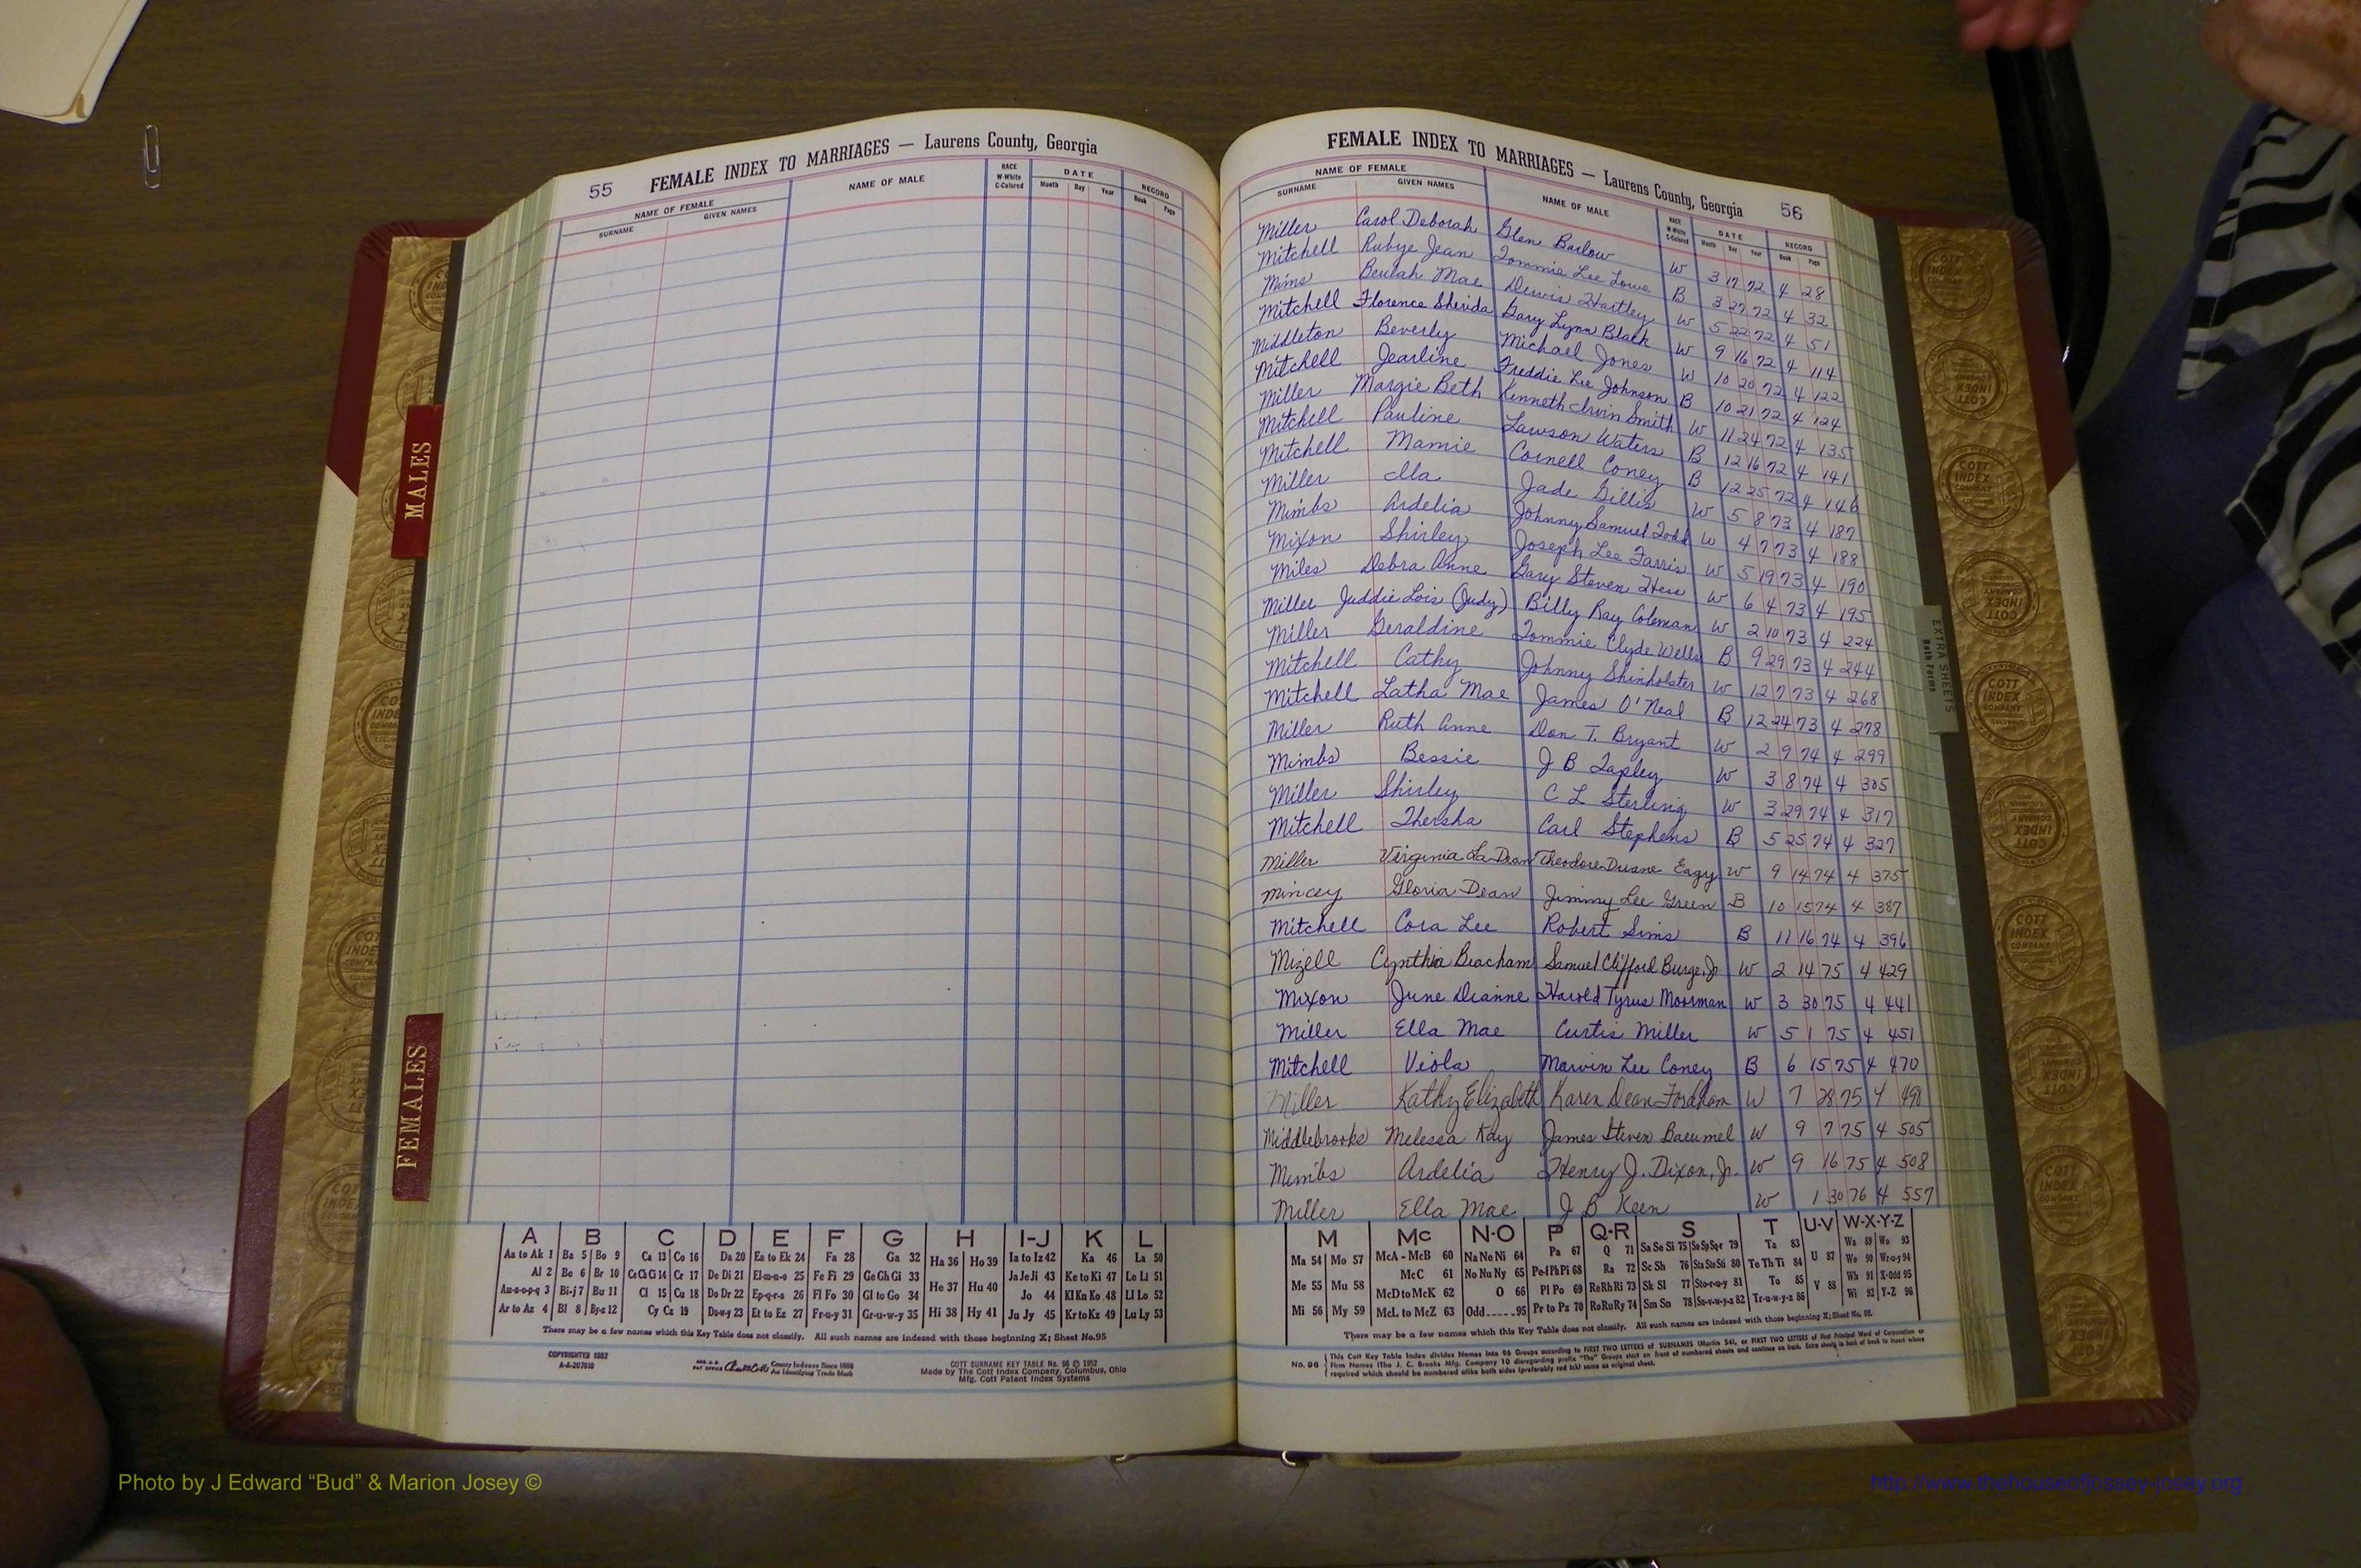 55 FEMALE INDEX TO MARRIAGES — Laurens County, Georgia
NAME OF FEMALE NAME OF MALE RACE W-White C-Colored DATE RECORD
SURNAME GIVEN NAMES Month Day Year Book Page
MALES
FEMALES
FEMALE INDEX TO MARRIAGES — Laurens County, Georgia 56
NAME OF FEMALE NAME OF MALE RACE W-White C-Colored DATE RECORD
SURNAME GIVEN NAMES Month Day Year Book Page
Miller Carol Deborah Glen Barlow W 3 17 72 4 28
Mitchell Rubye Jean Tommie Lee Lowe B 3 27 72 4 32
Mims Beulah Mae Dewis Hartley W 5 22 72 4 51
Mitchell Florence Sherida Gary Lynn Black W 9 16 72 4 114
Middleton Beverly Michael Jones W 10 20 72 4 122
Mitchell Jearline Freddie Lee Johnson B 10 21 72 4 124
Miller Margie Beth Kenneth Irvin Smith W 11 24 72 4 135
Mitchell Pauline Lawson Waters B 12 16 72 4 141
Mitchell Mamie Cornell Coney B 12 25 72 4 146
Miller Ila Jade Gillis W 5 8 73 4 187
Mimbs Ardelia Johnny Samuel Todd W 4 7 73 4 188
Mixon Shirley Joseph Lee Farris W 5 19 73 4 190
Miles Debra Anne Gary Steven Hess W 6 4 73 4 195
Miller Juddie Lois (Judy) Billy Ray Coleman W 2 10 73 4 224
Miller Geraldine Tommie Clyde Wells B 9 29 73 4 244
Mitchell Cathy Johnny Shinholster W 12 7 73 4 268
Mitchell Latha Mae James O'Neal B 12 24 73 4 278
Miller Ruth Anne Don T. Bryant W 2 9 74 4 299
Mimbs Bessie J B Tapley W 3 8 74 4 305
Miller Shirley C L Sterling W 3 29 74 4 317
Mitchell Thersha Carl Stephens B 5 25 74 4 327
Miller Virginia La Dean Theodore Duane Eagy W 9 14 74 4 375
Mincey Gloria Dean Jimmy Lee Green B 10 15 74 4 387
Mitchell Cora Lee Robert Sims B 11 16 74 4 396
Mizell Cynthia Beacham Samuel Clifford Burge, Jr W 2 14 75 4 429
Mixon June Dianne Harold Tyrus Moorman W 3 30 75 4 441
Miller Ella Mae Curtis Miller W 5 1 75 4 451
Mitchell Viola Marvin Lee Coney B 6 15 75 4 470
Miller Kathy Elizabeth Karen Dean Fordham W 7 28 75 4
Middlebrooks Melessa Kay James Steven Baeumel W 9 7 75 4 505
Mimbs Ardelia Henry J. Dixon, Jr. W 9 16 75 4 508
Miller Ella Mae J B Keen W 1 30 76 4 557
EXTRA SHEETS
Both Forms
A B C D E F G H I-J K L
Aa to Ak 1 Ba 5 Bo 9 Ca 13 Co 16 Da 20 Ea to Ek 24 Fa 28 Ga 32 Ha 36 Ho 39 Ia to Iz 42 Ka 46 La 50
Al 2 Be 6 Br 10 Ce Ch Ci 14 Cr 17 De Di 21 El-m-n-o 25 Fe Fi 29 Ge Gh Gi 33 He 37 Hu 40 Ja Je Ji 43 Ke to Ki 47 Le Li 51
Am-n-o-p-q 3 Bi-j 7 Bu 11 Cl 15 Cu 18 Do Dr 22 Ep-q-r-s 26 Fl Fo 30 Gl to Go 34 Jo 44 Kl Kn Ko 48 Ll Lo 52
Ar to Az 4 Bl 8 By-z 12 Cy Cz 19 Du-w-y 23 Et to Ez 27 Fr-u-y 31 Gr-u-w-y 35 Hi 38 Hy 41 Ju Jy 45 Kr to Kz 49 Lu Ly 53
There may be a few names which this Key Table does not classify. All such names are indexed with those beginning X; Sheet No. 95
COPYRIGHTED 1952
A-A-207619
County Indexes Since 1888
An Identifying Trade Mark
COTT SURNAME KEY TABLE No. 96 © 1952
Made by The Cott Index Company, Columbus, Ohio
Mfg. Cott Patent Index Systems
M Mc N-O P Q-R S T U-V W-X-Y-Z
Ma 54 Mo 57 McA - McB 60 Na Ne Ni 64 Pa 67 Q 71 Sa Se Si 75 So Sp Sq-r 79 Ta 83 U 87 Wa 89 Wo 93
Me 55 Mu 58 McC 61 No Nu Ny 65 Pe-f Ph Pi 68 Ra 72 Sc Sh 76 Sta Ste Sti 80 Te Th Ti 84 We 90 Wr-u-y 94
McD to McK 62 O 66 Pl Po 69 Re Rh Ri 73 Sk Sl 77 Sto-r-u-y 81 To 85 V 88 Wh 91 X-Odd 95
Mi 56 My 59 McL to McZ 63 Odd.....95 Pr to Pz 70 Ro Ru Ry 74 Sm Sn 78 Su-v-w-y-z 82 Tr-u-w-y-z 86 Wi 92 Y-Z 96
There may be a few names which this Key Table does not classify. All such names are indexed with those beginning X; Sheet No. 95.
No. 96 This Cott Key Table Index divides Names into 96 Groups according to FIRST TWO LETTERS of SURNAMES (Martin 54), or FIRST TWO LETTERS of First Principal Word of Corporation or
Firm Names (The J. C. Brooks Mfg. Company 10 disregarding prefix "The" Groups start on front of numbered sheets and continue on back. Extra sheets in back of book to insert where
required which should be numbered alike both sides (preferably red ink) same as original sheet.
Photo by J Edward “Bud” & Marion Josey ©
http://www.thehouseofjossey-josey.org